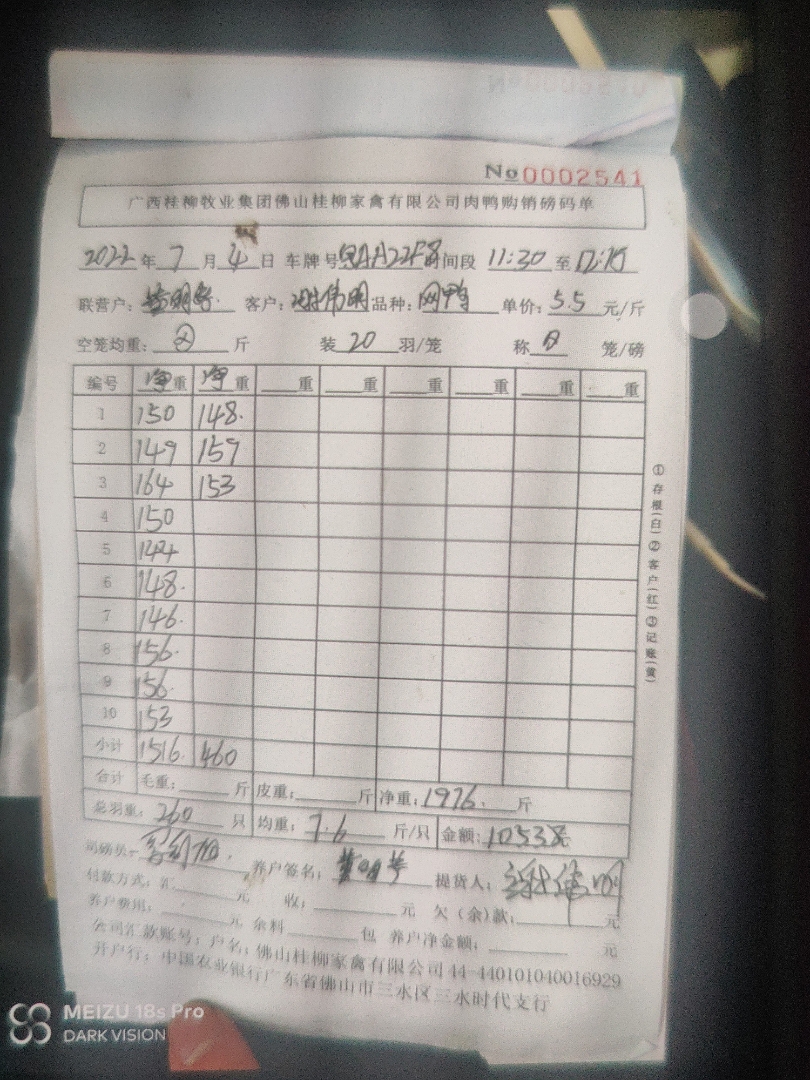 No 0002541
广西桂柳牧业集团佛山桂柳家禽有限公司肉鸭购销磅码单
2022 年 7 月 4 日 车牌号 时间段 11:30 至
联营户: 客户:谢伟明 品种:网鸭 单价:5.5 元/斤
空笼均重: 斤 装 20 羽/笼 称 笼/磅
编号 净重 净重 重 重 重 重 重 重
1 150 148.
2 149 159
3 164 153
4 150
5 144
6 148.
7 146.
8 156.
9 156.
10 153
小计 1516. 460
合计 毛重: 斤 皮重: 斤 净重:1976. 斤
总羽重: 260 只 均重: 7.6 斤/只 金额:
司磅员: 养户签名: 提货人:谢伟明
付款方式:汇 元 收: 元 欠(余)款: 元
养户费用: 元 余料 包 养户净金额: 元
公司汇款账号:户名:佛山桂柳家禽有限公司44-440101040016929
开户行:中国农业银行广东省佛山市三水区三水时代支行
①存根(白)②客户(红)③记账(黄)
MEIZU 18s Pro
DARK VISION